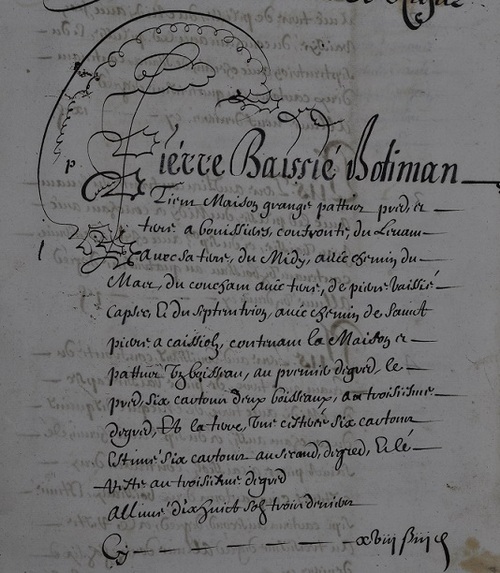 p.
Pierre Baissié Botiman
Tient Maison grange pattus pred, et
terre a bouissides, confronte, du Levant
avec sa terre, du Midy, avec chemin du
Mas, du couchant avec terre, de pierre vaissié
Capser, Et du septentrion, avec chemin de Sainct
pierre a caissiols, contenant la Maison et
pattus, Un boisseau, au premier degred, le
pred, six cartons deux boisseaux, au troisiesme
degred, Et la terre, Une cesterée six cartons
Estimé six cartons au second, degred, Et le
reste au troisiesme degred
Allivré dix huict solz trois deniers
Cy